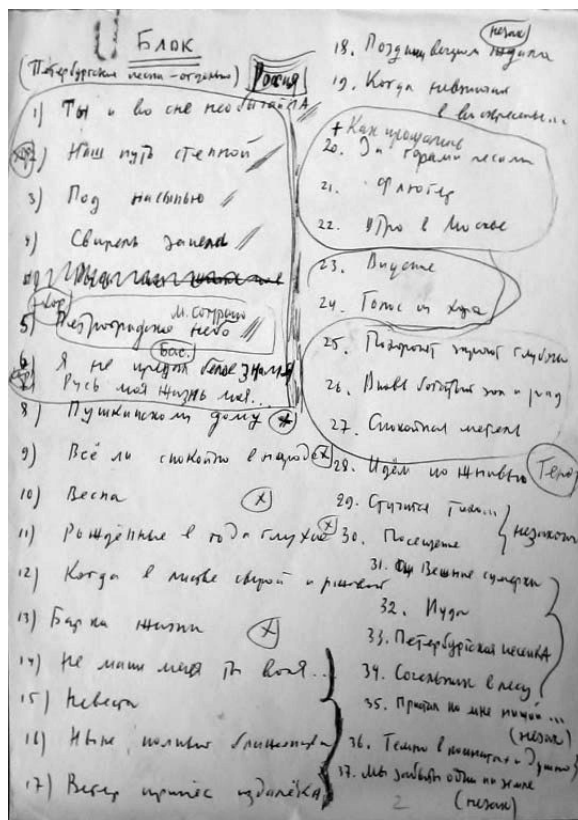 Блок
(Петербургская песня - отдельно) Россия
1) Ты и во сне необычайна
хор
2) Наш путь степной
3) Под насыпью
4) Свирель запела
+ хор
М. сопрано
5) Петроградское небо
Бас.
6 Я не предал белое знамя
хор
7 Русь моя жизнь моя...
8) Пушкинскому дому х
9) Всё ли спокойно в народе х
10) Весна х
11) Рождённые в года глухие х
12) Когда в листве сырой и ржавой
13) Барка жизни х
14) Не мани меня ты воля...
15) Невеста
16) Ныне, полный блаженства
17) Ветер принёс издалёка
незак
18. Поздним вечером ждала
19. Когда невзначай
в воскресенье...
+ Как прощались
20. За горами лесами
21. Флюгер
22. Утро в Москве
23. Видение
24. Голос из хора
25.
26. Вновь богатый зол и рад
27. Снежная метель
28. Идём по жнивью Тенор
29. Стучится тихо...
30. Посещение
незакон
31. Вешние сумерки
32. Иуда
33. Петербургская песенка
34. Сочельник в лесу
35. Пристал ко мне нищий...
(незак)
36. Темно в комнатах и душно
37. Мы забыты одни на земле
(незак)
2